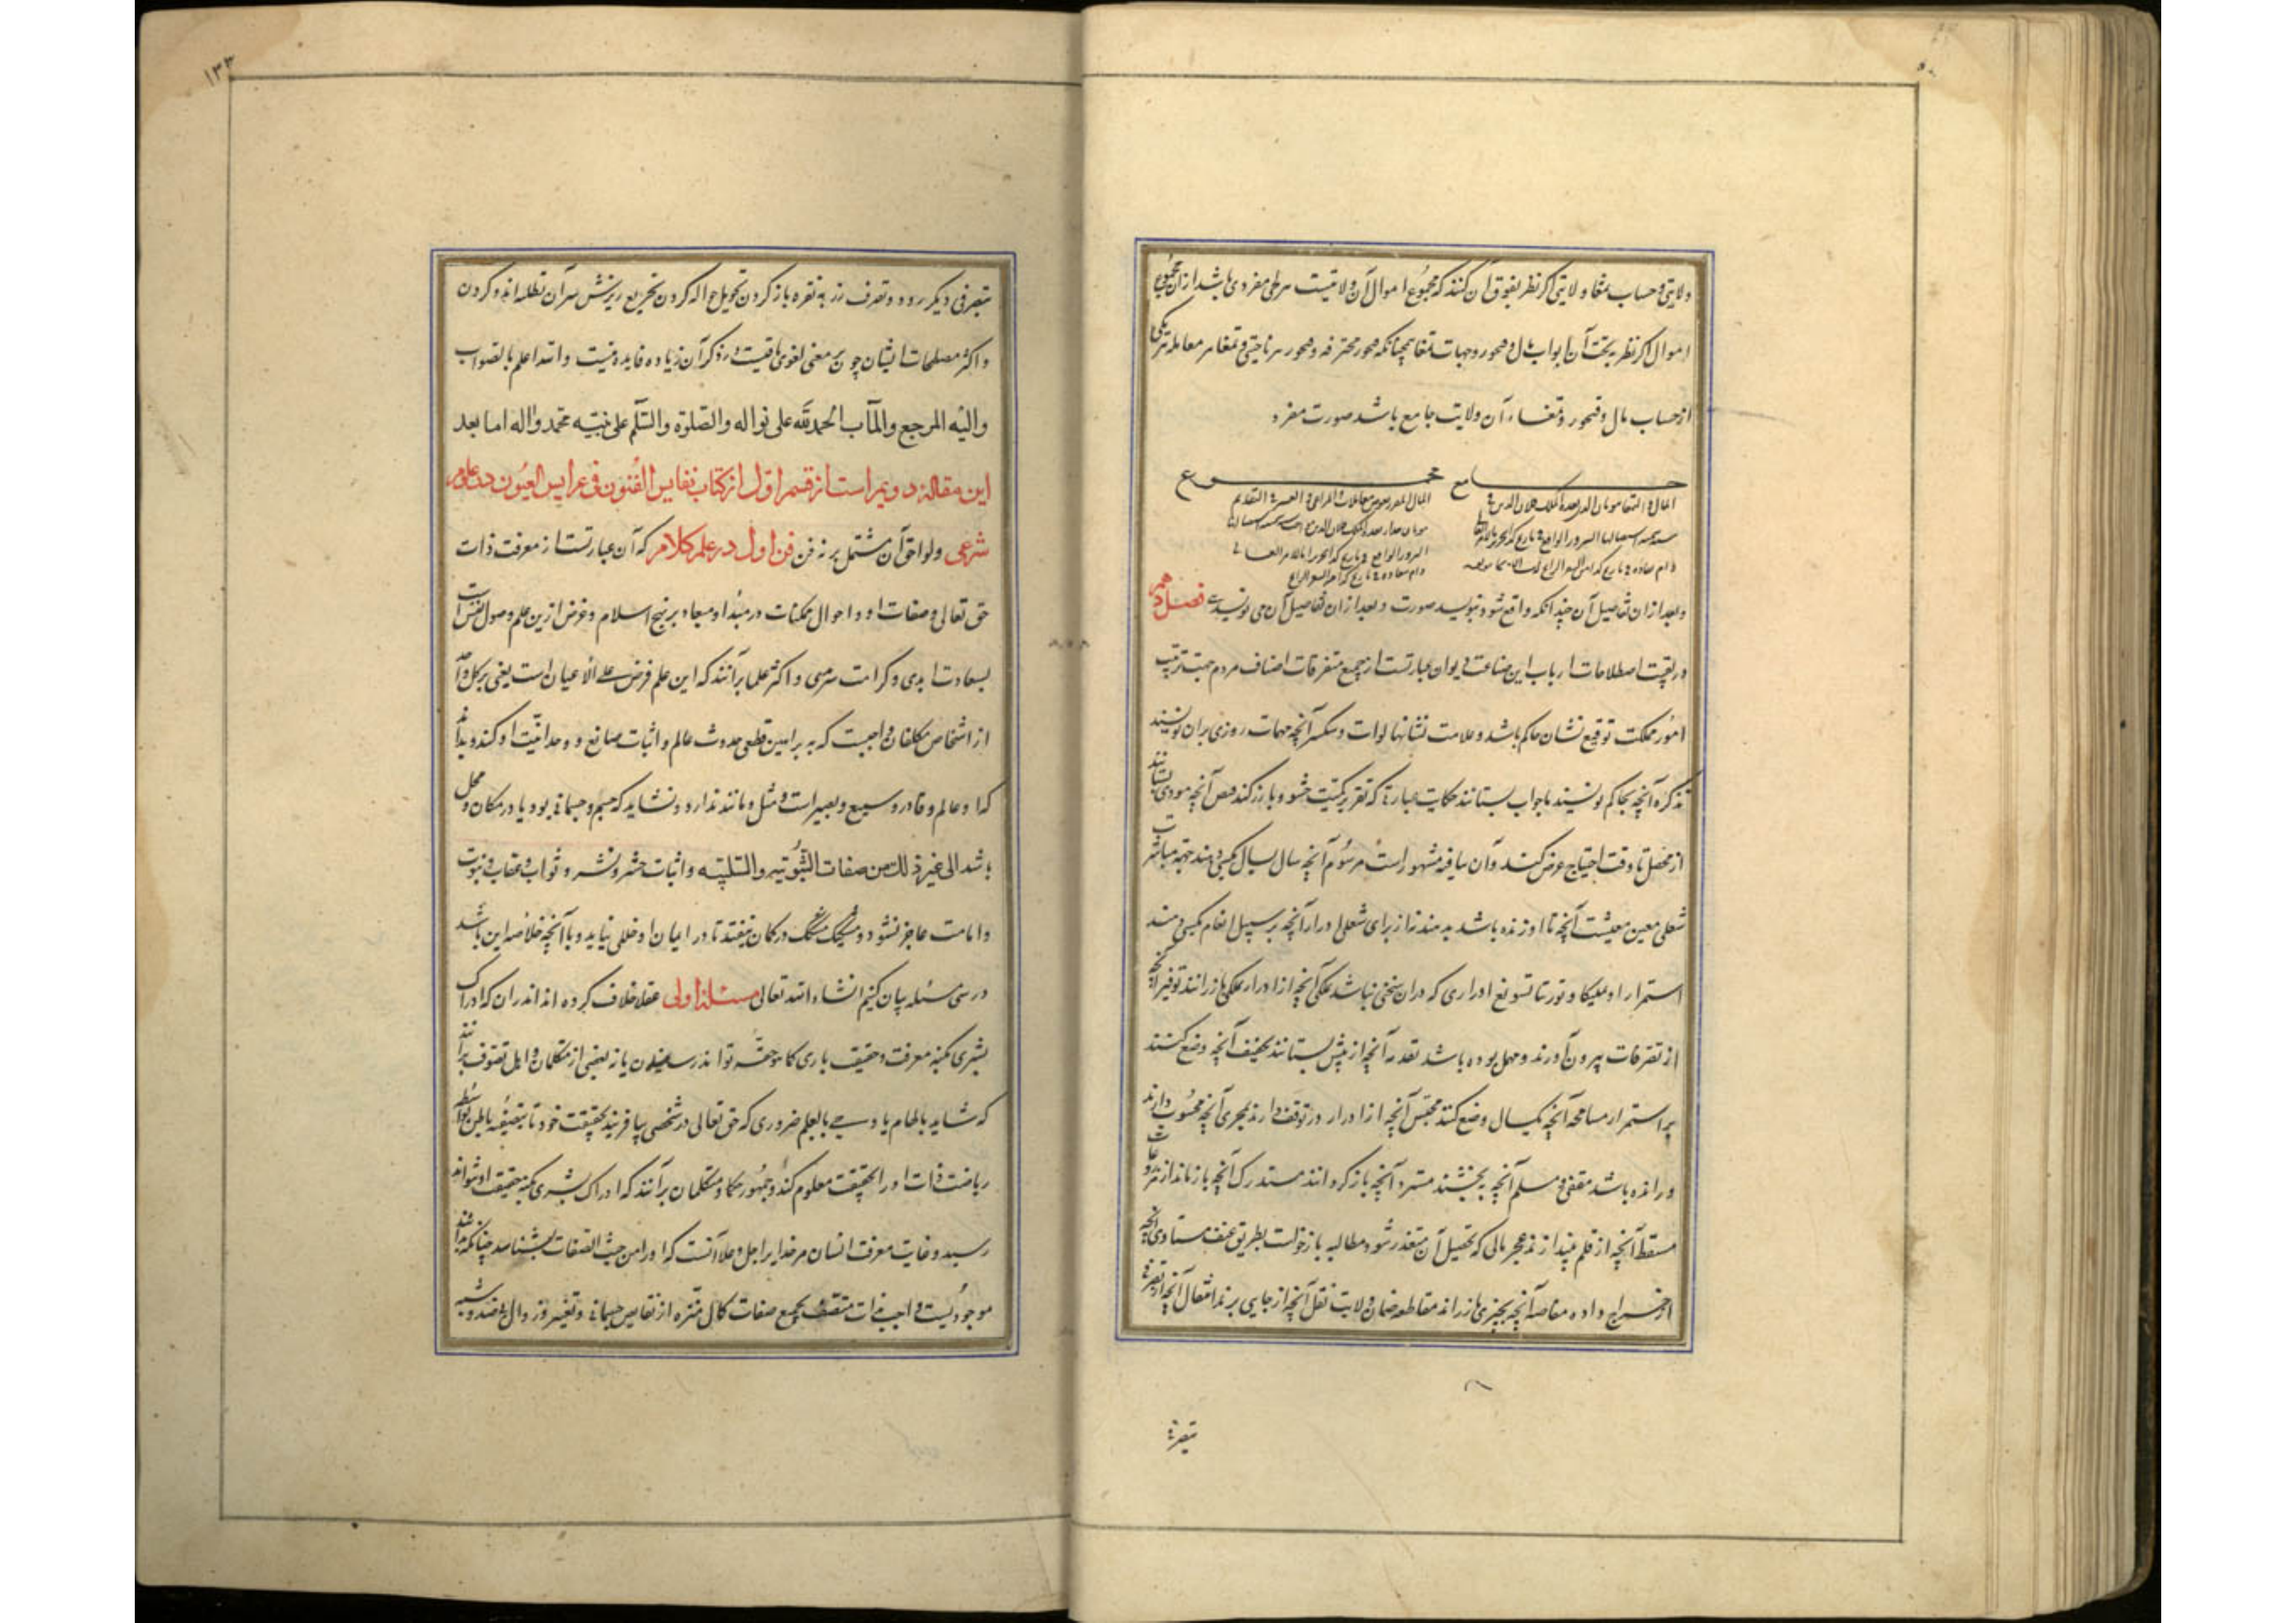 ولایتی و حساب تمغا و ولایتی اگر نظر بفوق آن کنند که مجموع اموال آن ولایتست هر طی مفردی باشد از آن مجموع
اموال و اگر نظر بتحت آن ابواب مال و قبچور و جهات تمغا همچنانکه قبچور محترفه و قبچور هر ناحیتی و تمغا هر معامله هر یکی
از حساب مال و قبچور و تمغاء آن ولایت جامع باشد صورت مفرد
جامع مجموع
و بعد از ان تفاصیل آن چندانکه واقع شود بنویسد صورت و بعد از ان تفاصیل آن می نویسند فصل دهم
در بقیت اصطلاحات ارباب این صناعت دیوان عبارتست از جمیع متفرقات اصناف مردم جهت ترتیب
امور مملکت توقیع نشان حاکم باشد و علامت نشانها آنچه مهمات روزی بران نویسند
تذکره آنچه بحاکم نویسند تا جواب بستانند حکایت عبارتی که تقریر کمیت حشو و بارز کند آنچه مودی بستانند
از محصل تا وقت احتیاج عرض کنند و آن سیاقه مشهور است مرسوم آنچه سال بسال بکسی دهند جهت مباشرت
شغلی معین معیشت آنچه تا او زنده باشد بدهند نه از برای شغلی ادرار آنچه بر سبیل انعام بکسی دهند
استمرار تسویغ ادراری که دران سخنی نباشد آنچه از ادرار بازرانند توفیر آنچه
از تصرفات بیرون آورند و مهمل بوده باشد تقدمه آنچه از پیش بستانند تخفیف آنچه وضع کنند
بر استمرار مسامحه آنچه یکسال وضع کنند محتبس آنچه از ادرار در توقف دارند مجری آنچه محسوب دارند
و رانده باشد مقفی مسلم آنچه ببخشند مسترد آنچه باز گردانند مستدرک آنچه باز ماند از
مسقط آنچه از قلم بیندازند عجز مالی که تحصیل آن متعذر شود مطالبه بازخواست بطریق عنف مساوی آنچه
از خراج داده مقاصه آنچه بچیزی بازرانند مقاطعه ضمان ولایت نقل آنچه از جایی برند انتقال آنچه از تصرفی
بتصرفی
۱۳۳
بتصرفی دیگر رود و تصرف زر به نقره باز کردن تحویل حواله کردن
و اکثر مصطلحات ایشان چون بر معنی لغوی باقیست در ذکر آن زیاده فایده نیست والله اعلم بالصواب
والیه المرجع والمآب الحمدلله علی نواله والصلوة والسلم علی نبیه محمد واله اما بعد
این مقالۀ دویم است از قسم اول از کتاب نفایس الفنون فی عرایس العیون در علوم
شرعی و لواحق آن مشتمل بر نه فن فن اول در علم کلام که آن عبارتست از معرفت ذات
حق تعالی و صفات او و احوال ممکنات در مبدا و معاد بر نهج اسلام و غرض ازین علم وصول نفس است
بسعادت ابدی و کرامت سرمدی و اکثر علما برآنند که این علم فرض علی الاعیان است یعنی بر کل واحد
از اشخاص مکلفان واجبست که به براهین قطعی حدوث عالم و اثبات صانع و وحدانیت او کند و بداند
که او عالم و قادر و سمیع و بصیر است و مثل و مانند ندارد و نشاید که جسم و جسمانی بود یا در مکان و محل
باشد الی غیر ذلک من صفات الثبوتیه والسلبیه و اثبات حشر و نشر و ثواب و عقاب و نبوت
و امامت عاجز نشود و بتشکیک مشکک در گمان نیفتد تا در ایمان او خللی نیاید و ما آنچه خلاصه این باشد
در سی مسئله بیان کنیم انشاء الله تعالی مسئلۀ اولی عقلا خلاف کرده اند اندران که ادراک
بشری بکنه معرفت و حقیقت باری کما هو حقه تواند رسیدن یا نه بعضی از متکلمان و اهل تصوف برآنند
که شاید بالهام یا وحی یا بعلم ضروری که حق تعالی در شخصی بیافریند بحقیقت خود تا بتصفیه باطن بواسطه
ریاضت ذات او را بحقیقت معلوم کند و جمهور حکما و متکلمان برآنند که ادراک بشری بکنه حقیقت او نتواند
رسید و غایت معرفت انسان مر خدایرا جل و علا آنست که او را من حیث الصفات بشناسد چنانکه بداند
موجودیست واجب ذات متصف بجمیع صفات کمال منزه از نقایص جسمانی و تغیر و زوال و ضد و شبیه